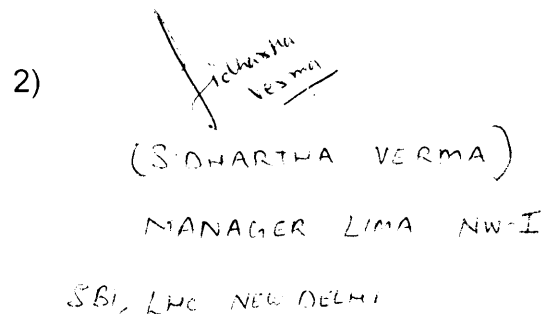 2)
Sidhartha
Verma
(SIDHARTHA VERMA)
MANAGER LIMA NW-I
SBI, LHO NEW DELHI